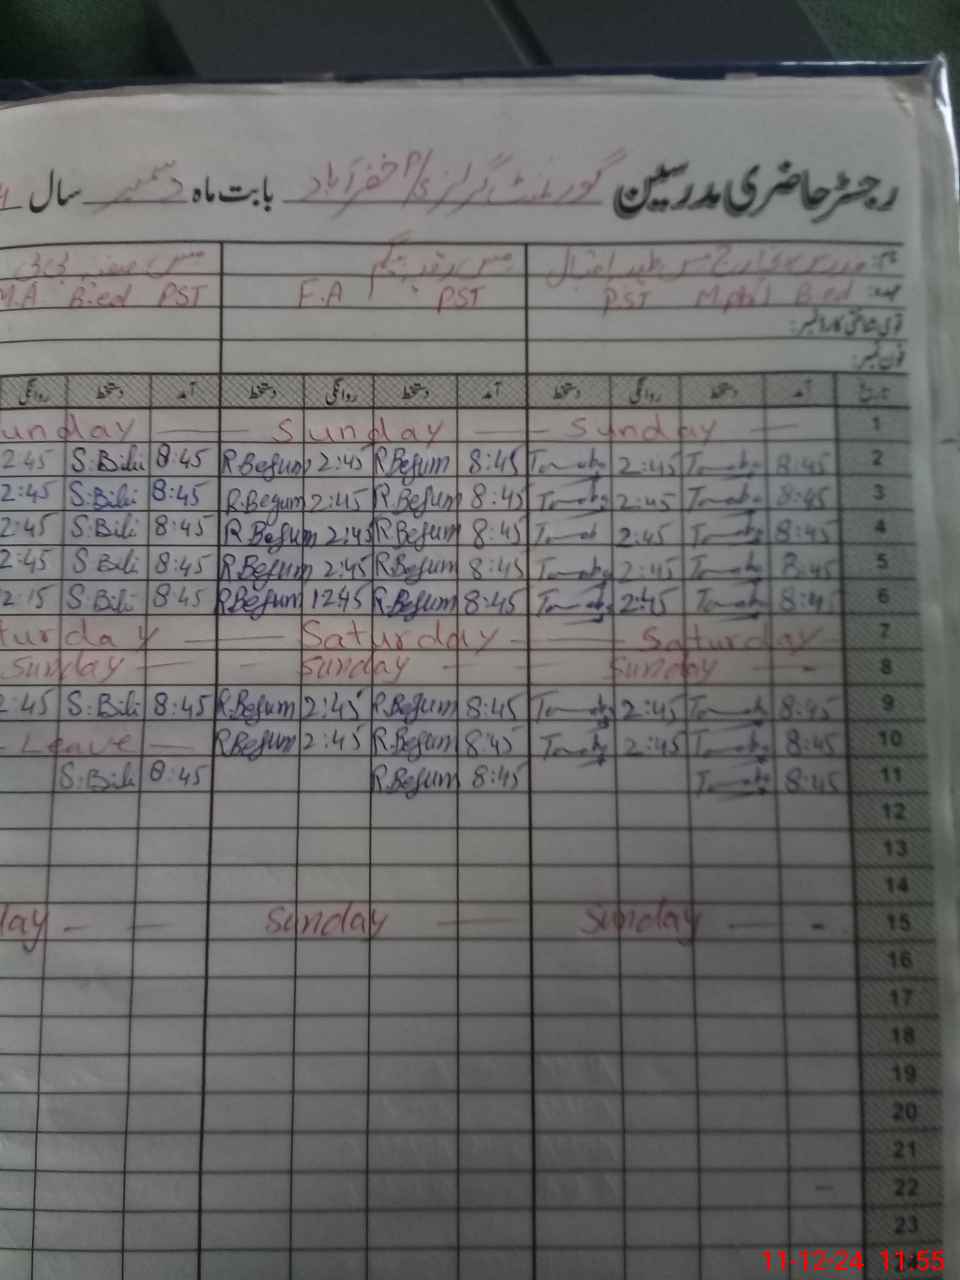 رجسٹر حاضری مدرسین گورنمنٹ گرلز خضرآباد بابت ماہ دسمبر سال
نام: مس
عہدہ: PST M.phil B.ed PST F.A M.A B.ed PST
قومی شناختی کارڈ نمبر:
فون نمبر:
تاریخ آمد دستخط روانگی دستخط آمد دستخط روانگی دستخط آمد دستخط روانگی
unday — Sunday — Sunday — 1
2:45 S.Bibi 8:45 R.Begum 2:45 R.Begum 8:45 2:45 8:45 2
2:45 S.Bibi 8:45 R.Begum 2:45 R.Begum 8:45 2:45 8:45 3
2:45 S.Bibi 8:45 R.Begum 2:45 R.Begum 8:45 2:45 8:45 4
2:45 S.Bibi 8:45 R.Begum 2:45 R.Begum 8:45 2:45 8:45 5
2:15 S.Bibi 8:45 R.Begum 1245 R.Begum 8:45 2:45 8:45 6
turday — Saturday — Saturday 7
Sunday — Sunday — Sunday - 8
2:45 S.Bibi 8:45 R.Begum 2:45 R.Begum 8:45 2:45 8:45 9
- Leave — R.Begum 2:45 R.Begum 8:45 2:45 8:45 10
S.Bibi 8:45 R.Begum 8:45 8:45 11
12
13
14
day — Sunday — Sunday — - 15
16
17
18
19
20
21
22
23
11-12-24 11:55